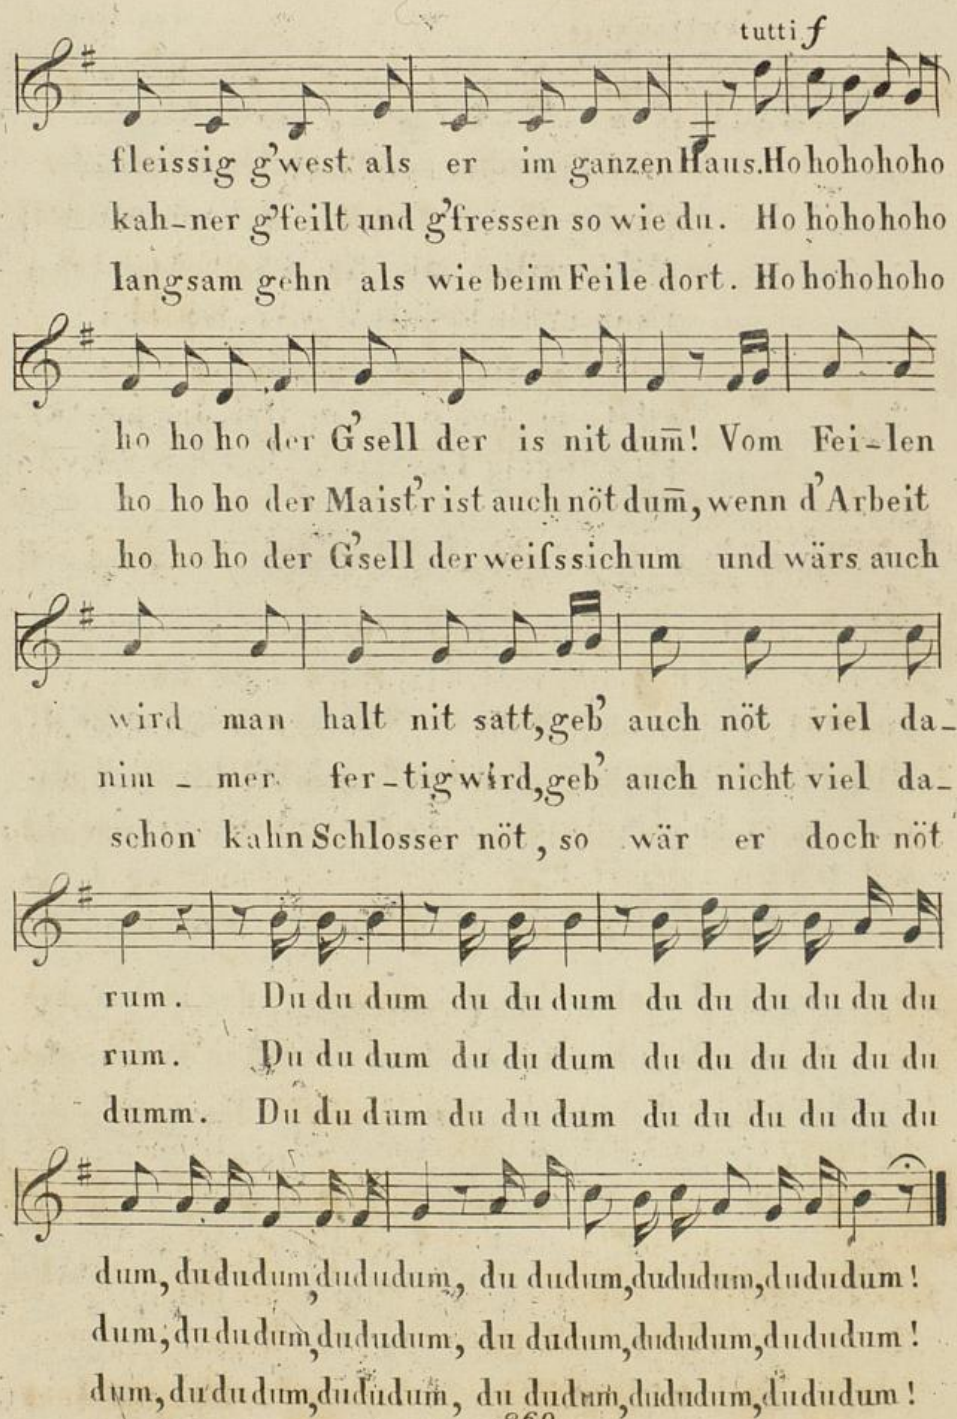 tutti f
fleissig g'west als er im ganzen Haus. Ho hohohoho
kah-ner g'feilt und g'fressen so wie du. Ho hohohoho
langsam gehn als wie beim Feile dort. Ho hohohoho
ho ho ho der G'sell der is nit dum̄! Vom Fei-len
ho ho ho der Maist'r ist auch nöt dum̄, wenn d'Arbeit
ho ho ho der G'sell der weiſssich um und wärs auch
wird man halt nit satt, geb' auch nöt viel da-
nim - mer fer-tig wird, geb' auch nicht viel da-
schon kahn Schlosser nöt, so wär er doch nöt
rum. Du du dum du du dum du du du du du du
rum. Du du dum du du dum du du du du du du
dumm. Du du dum du du dum du du du du du du
dum, dududum, dududum, du dudum, dududum, dududum!
dum, dududum, dududum, du dudum, dududum, dududum!
dum, dududum, dududum, du dudum, dududum, dududum!